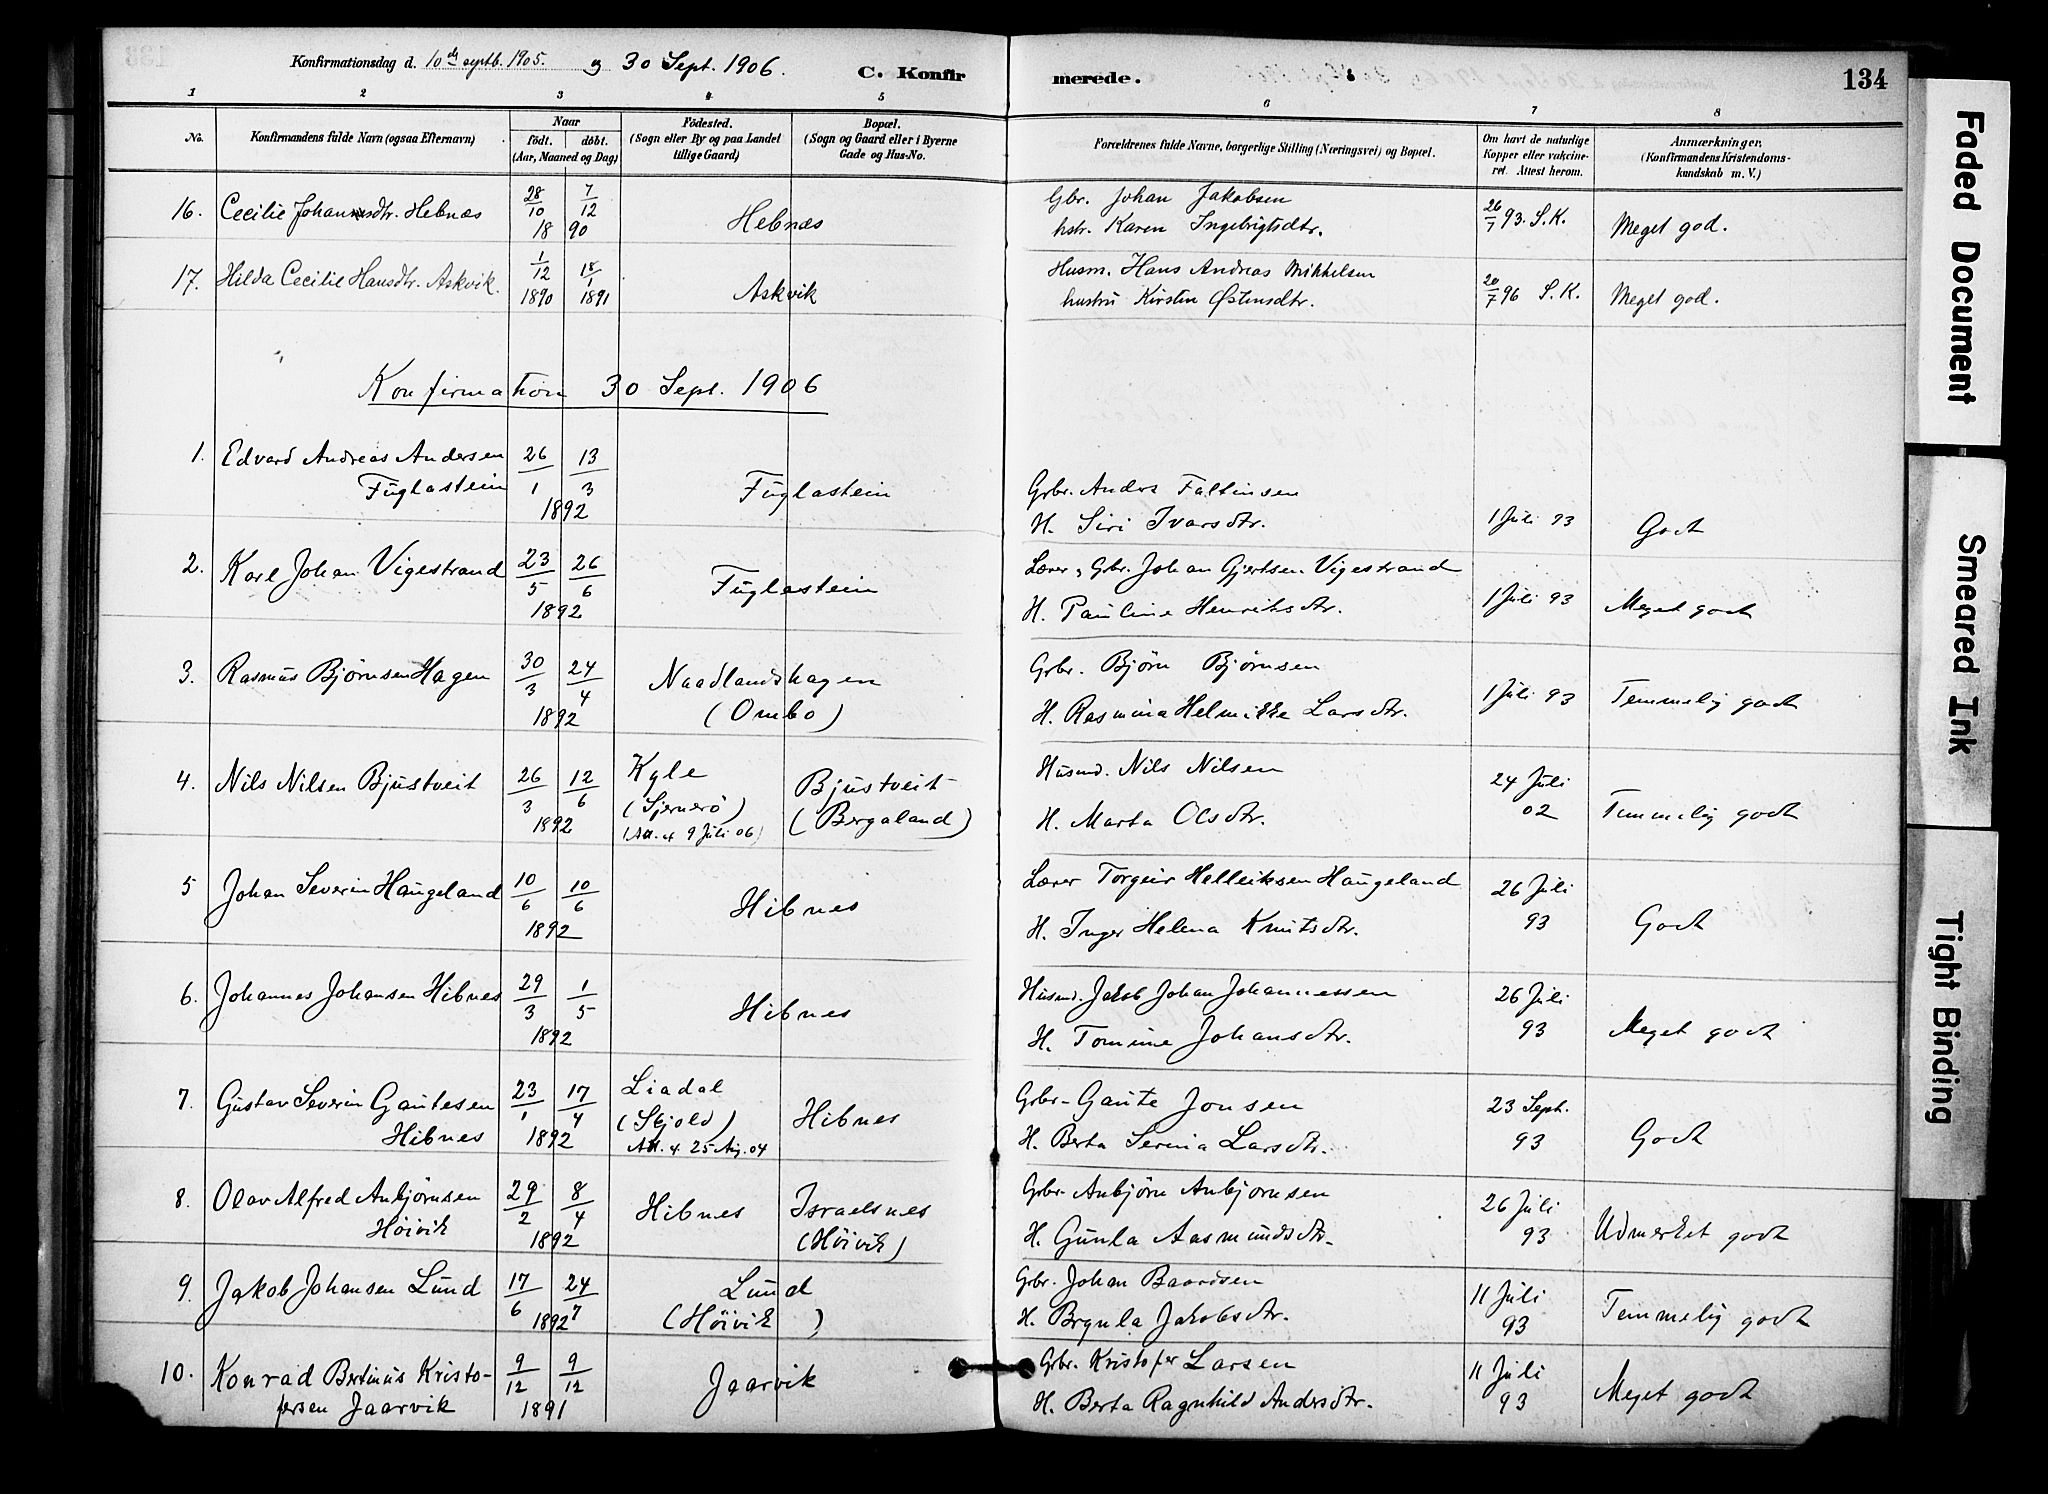 Konfirmationsdag d. 10de septb. 1905. og 30 Sept. 1906. C. Konfirmerede. 134
1 2 3 4 5 6 7 8
No. Konfirmandens fulde Navn (ogsaa Efternavn) Naar født. døbt. (Aar, Maaned og Dag) Fødested. (Sogn eller By og paa Landet tillige Gaard) Bopæl. (Sogn og Gaard eller i Byerne Gade og Hus-No. Forældrenes fulde Navne, borgerlige Stilling (Næringsvei) og Bopæl. Om havt de naturlige Kopper eller vakcineret. Attest herom. Anmærkninger. (Konfirmandens Kristendomskundskab m. V.)
16. Cecilie Johannsdtr. Hebnæs 28/10 7/12 1890 Hebnæs Gbr. Johan Jakobsen
hstr. Karen Ingebrigtsdtr. 26/7 93. S.K. Meget god.
17. Hilda Cecilie Hansdtr. Askvik. 1/12 1890 18/1 1891 Askvik Husm. Hans Andreas Mikkelsen
hustru Kirsten Østensdtr. 20/7 96 S.K. Meget god.
Konfirmation 30 Sept. 1906
1. Edvard Andreas Andersen
Fuglastein 26/1 13/3 1892 Fuglastein Grbr. Anders Faltinsen
H. Siri Ivarsdtr. 1 Juli 93 Godt
2. Karl Johan Vigestrand 23/5 26/6 1892 Fuglastein Lærer, Grbr. Johan Gjertsen Vigestrand
H. Pauline Henriksdtr. 1 Juli 93 Meget godt
3. Rasmus Bjørnsen Hagen 30/3 24/4 1892 Naadlandshagen
(Ombo) Grbr. Bjørn Bjørnsen
H. Rasmina Helmikke Larsdtr. 1 Juli 93 Temmelig godt
4. Nils Nilsen Bjustveit 26/3 12/6 1892 Kyle
(Sjernerö)
(Att. 4 9 Juli 06) Bjustveit
(Bergaland) Husmd. Nils Nilsen
H. Marta Olsdtr. 24 Juli
02 Temmelig godt
5 Johan Severin Haugeland 10/6 10/6 1892 Hibnes Lærer Torgeir Helleiksen Haugeland
H. Inger Helena Knutsdtr. 26 Juli
93 Godt
6. Johannes Johansen Hibnes 29/3 1/5 1892 Hibnes Husmd. Jakob Johan Johannessen
H. Tomine Johansdtr. 26 Juli
93 Meget godt
7. Gustav Severin Gautesen
Hibnes 23/1 17/4 1892 Liadal
(Skjold)
Att. 4. 25 Aug. 04 Hibnes Grbr. Gaute Jonsen
H. Berta Serina Larsdtr. 23 Sept.
93 Godt
8. Olav Alfred Anbjørnsen
Høivik 29/2 8/4 1892 Hibnes Israelsnes
(Høivik) Grbr. Anbjørn Anbjørnsen
H. Gunla Aasmundsdtr. 26 Juli
93 Udmerket godt
9. Jakob Johansen Lund 17/6 24/7 1892 Lund
(Høivik) Grbr. Johan Baardsen
H. Brynla Jakobsdtr. 11 Juli
93 Temmelig godt
10. Konrad Bertinus Kristofersen
Jaarvik 9/12 9/12 1891 Jaarvik Grbr. Kristofer Larsen
H. Berta Ragnhild Andersdtr. 11 Juli
93 Meget godt
Faded Document
Smeared Ink
Tight Binding